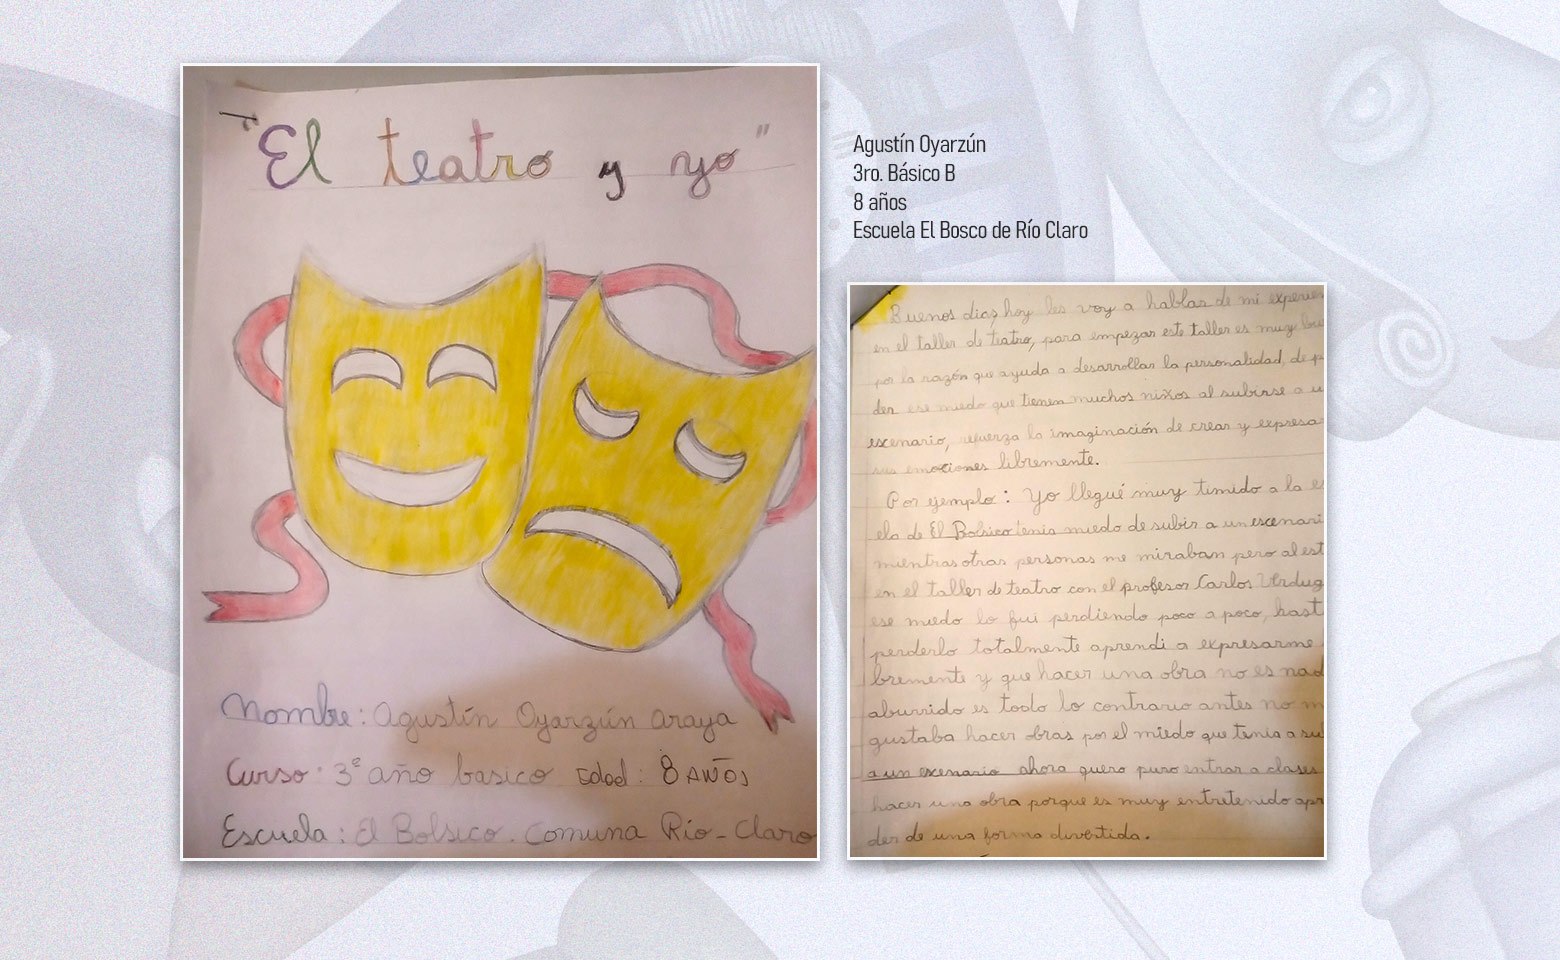 "El teatro y yo"
Nombre: Agustín Oyarzún Araya
Curso: 3º año basico Edad: 8 AÑOS
Escuela: El Bolsico. Comuna Río-Claro
Agustín Oyarzún
3ro. Básico B
8 años
Escuela El Bosco de Río Claro
Buenos dias, hoy les voy a hablar de mi experien
en el taller de teatro, para empezar este taller es muy
por la razón que ayuda a desarrollar la personalidad, de p
der ese miedo que tienen muchos niños al subirse a u
escenario, refuerza la imaginación de crear y expresa
sus emociones libremente.
Por ejemplo: Yo llegué muy timido a la es
ela de El Bolsico tenia miedo de subir a un escenari
mientras otras personas me miraban pero al est
en el taller de teatro con el profesor Carlos Verdug
ese miedo lo fui perdiendo poco a poco, hast
perderlo totalmente aprendi a expresarme
bremente y que hacer una obra no es nad
aburrido es todo lo contrario antes no m
gustaba hacer obras por el miedo que tenia a su
a un escenario ahora quero puro entrar a clases
hacer una obra porque es muy entretenido apr
der de una forma divertida.